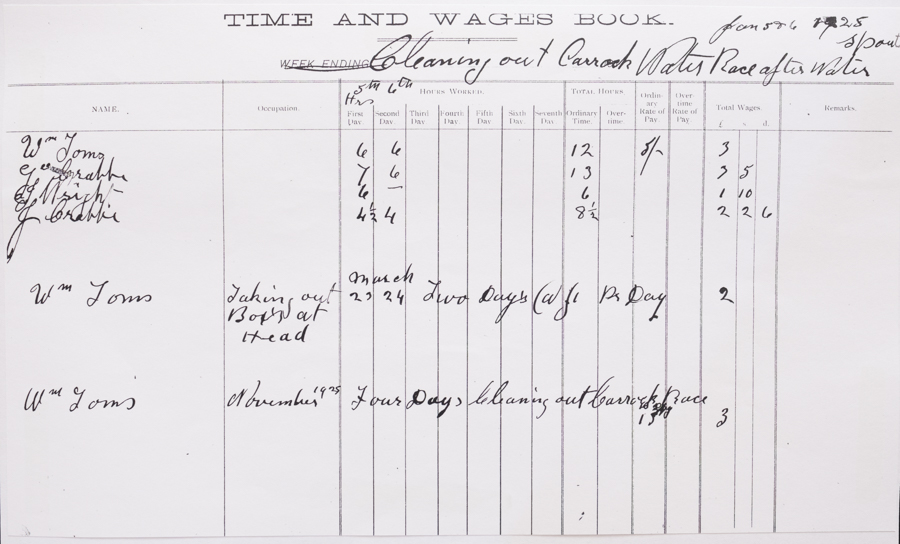 TIME AND WAGES BOOK.
Jan 5 & 6 1925
WEEK ENDING Cleaning out Carrock Water Race after Water Spout
5th 6th
Hrs
NAME. Occupation. HOURS WORKED. TOTAL HOURS. Ordinary Rate of Pay. Overtime Rate of Pay. Total Wages. Remarks.
First Day. Second Day. Third Day. Fourth Day. Fifth Day. Sixth Day. Seventh Day. Ordinary Time. Overtime. £ s. d.
Wm Toms 6 6 12 5/- 3
Crabbe 7 6 13 3 5
Wright 6 – 6 1 10
J Crabbe 4½ 4 8½ 2 2 6
March
Wm Toms Taking out 23 24 Two Days @ £1 Pr Day 2
Boxs at
Head
Wm Toms November 1925 Four Days Cleaning out Carrock Race
15 3